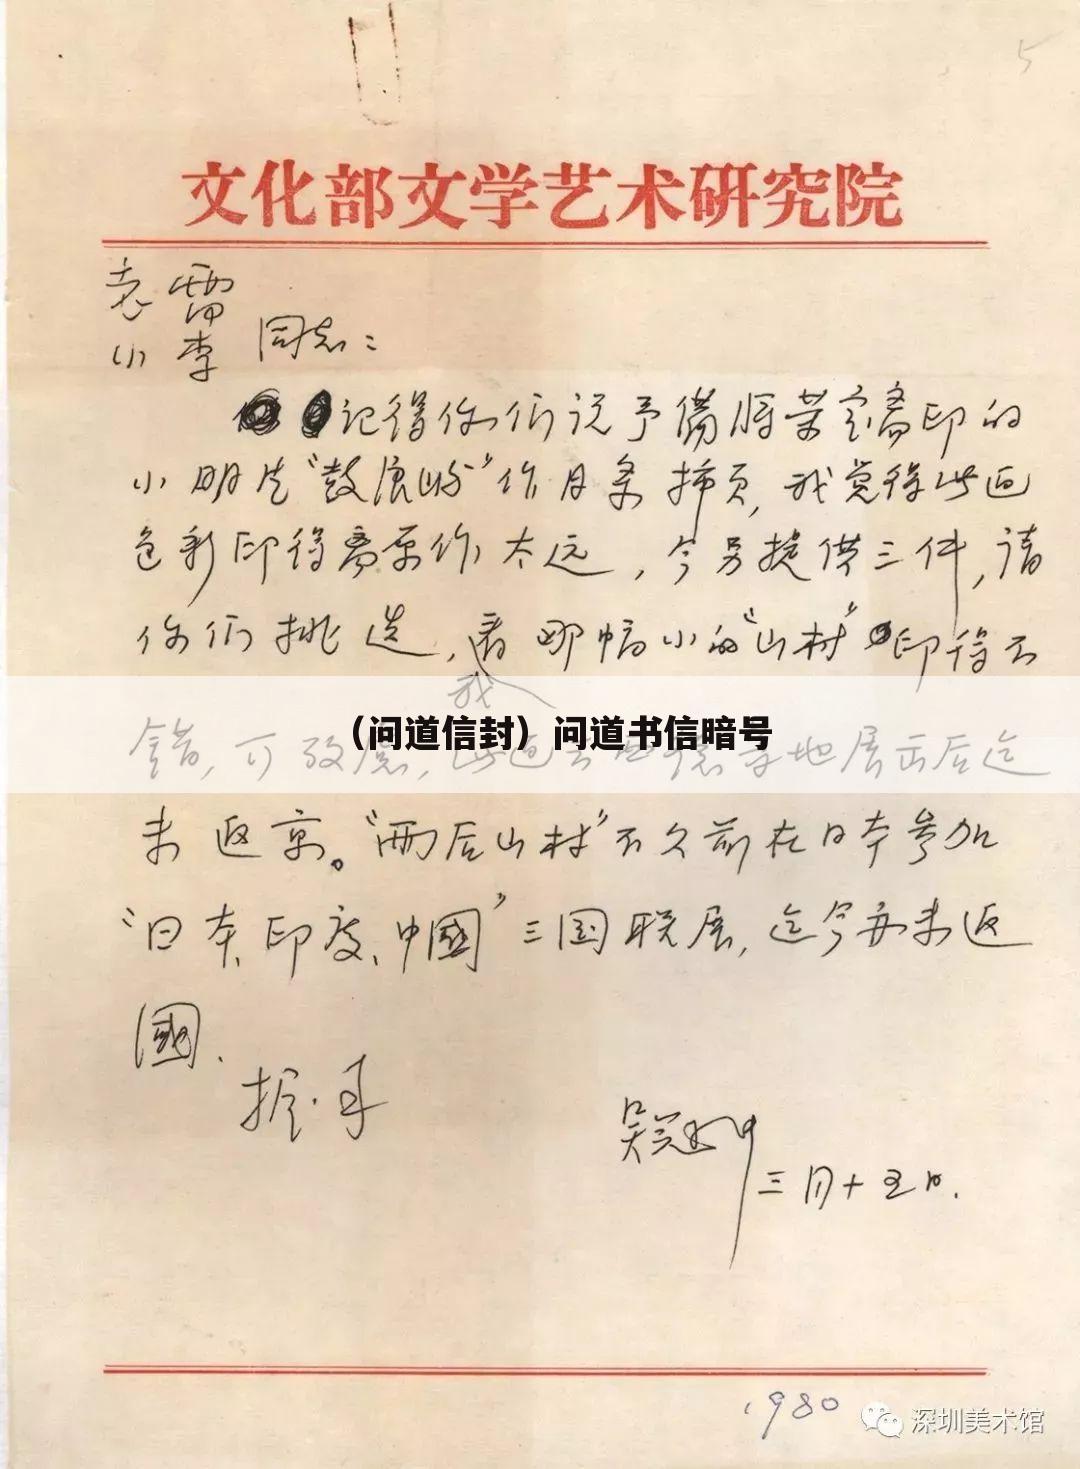 5
文化部文学艺术研究院
袁 雷
小 李 同志：
记得你们说予备将荣宝斋印的
小明片“鼓浪屿”作月条插页，我觉得此画
色彩印得离原作太远，今另提供三件，请
你们挑选，看那幅小的“山村”印得不
我
错，可攷虑，此画去 地展出后迄
（问道信封）问道书信暗号
未返京。“雨后山村”不久前在日本参加
“日本、印度、中國”三国联展，迄今亦未返
國．
握．手
吴冠中
三月十五日．
1980
深圳美术馆